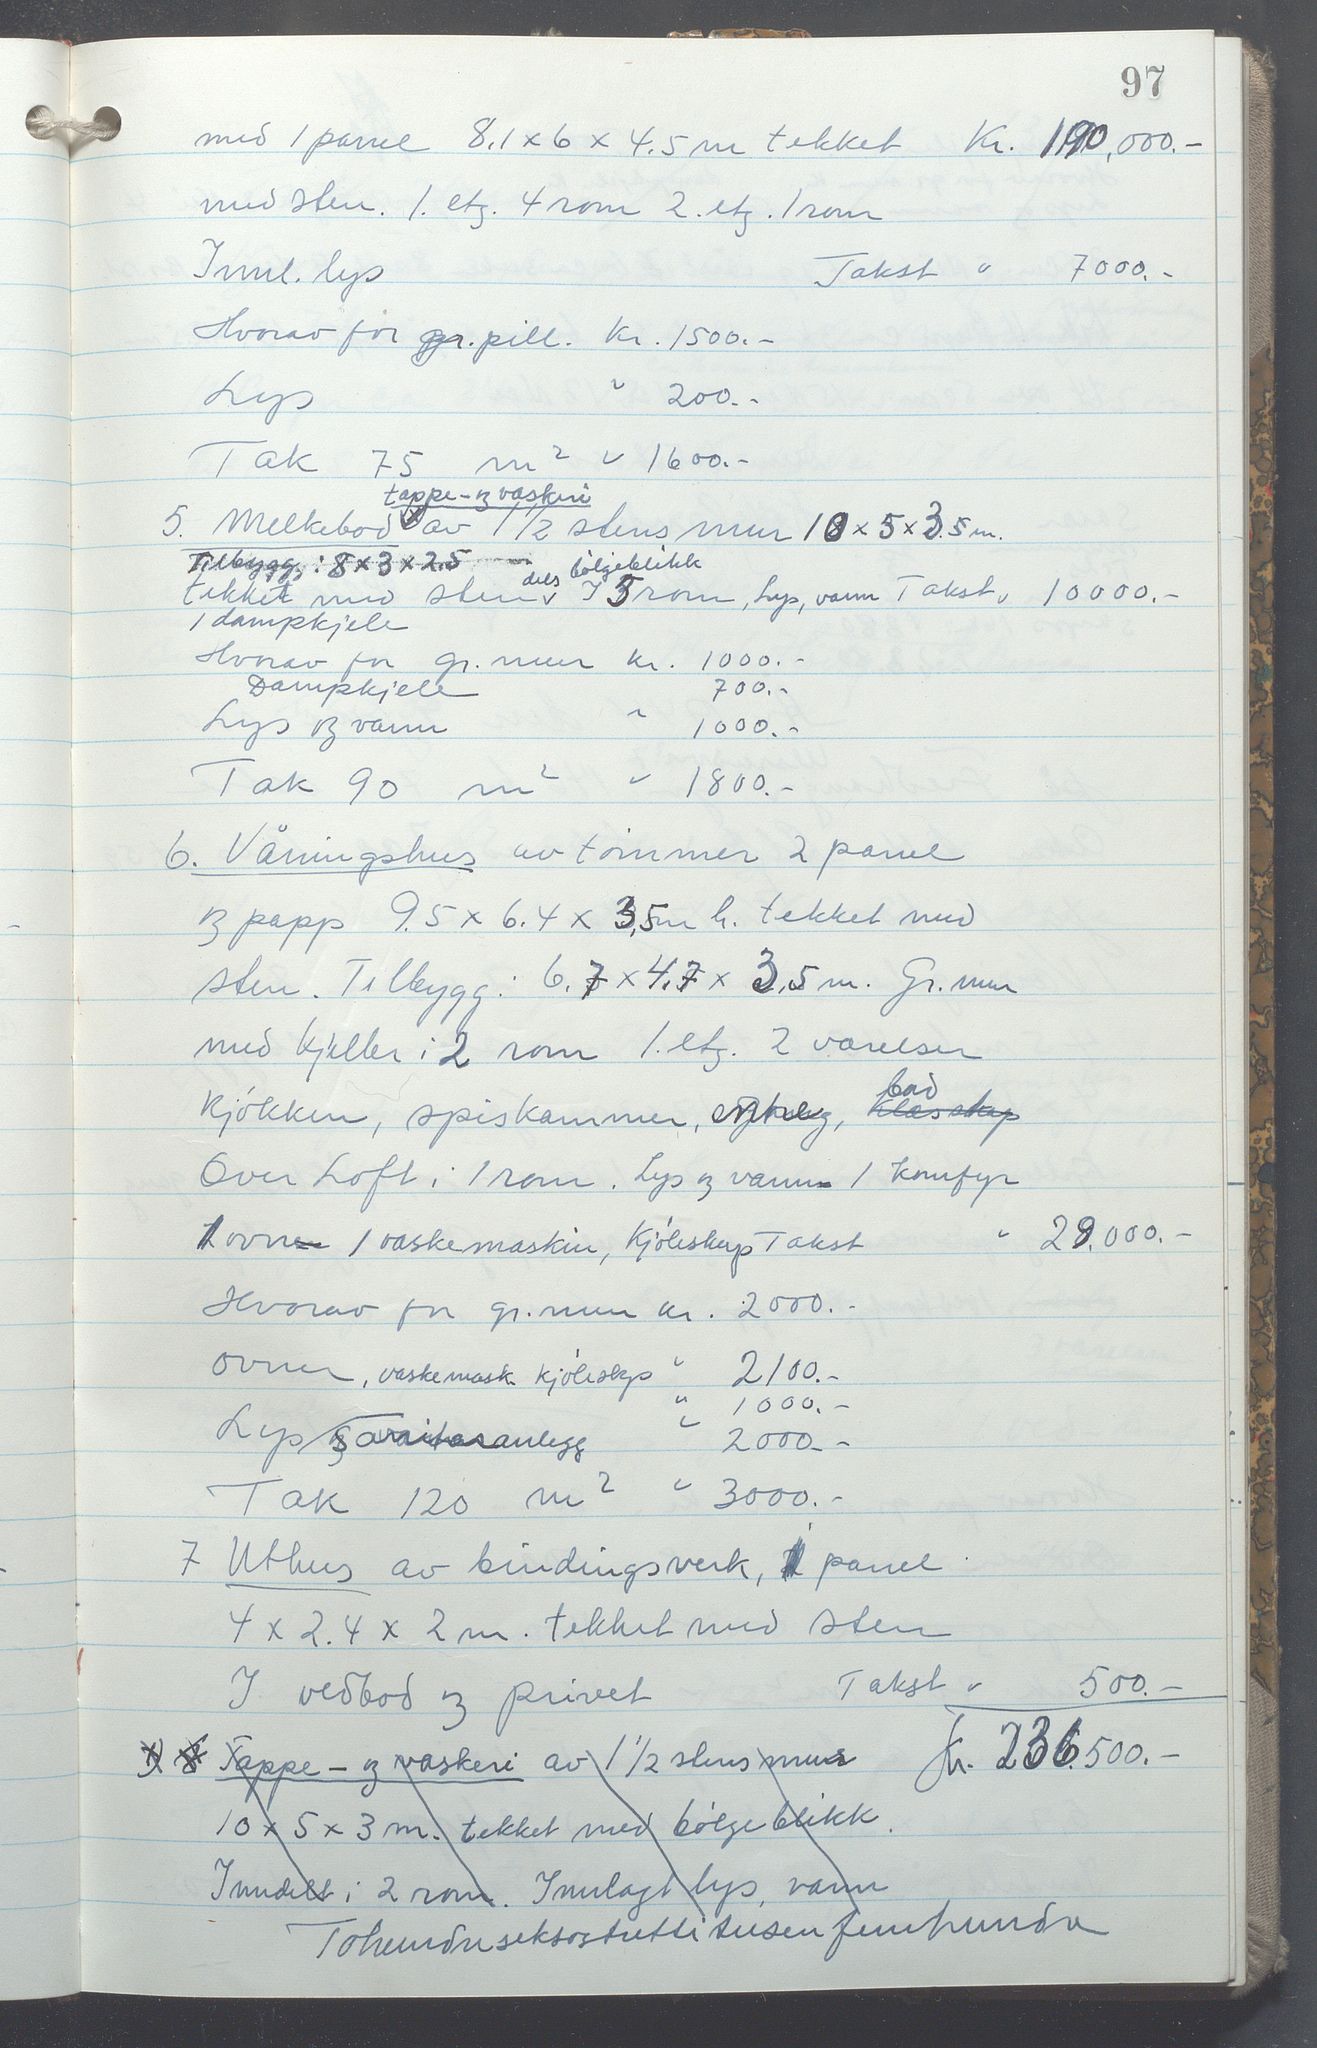 97
med 1 panel 8.1 x 6 x 4.5 m tekket Kr. 190,000.-
med sten. 1. etg. 4 rom 2. etg. 1 rom
Innl. lys Takst " 7000.-
Hvorav for gr. pill. Kr. 1500.-
Lys " 200.-
Tak 75 m² " 1600.-
tappe- og vaskeri
5. Melkebod av 1 1/2 stens mur 10 x 5 x 3.5 m.
Tilbygg: 8 x 3 x 2.5
dels bølgeblikk
tekket med sten I 5 rom, Lys, vann Takst " 10000.-
1 dampkjele
Hvorav for gr. mur kr. 1000.-
Dampkjele 700.-
Lys og vann " 1000.-
Tak 90 m² " 1800.-
6. Våningshus av tømmer 2 panel
og papp 9.5 x 6.4 x 3,5 m h. tekket med
sten. Tilbygg: 6.7 x 4.7 x 3.5 m. Gr. mur
med kjeller i 2 rom 1. etg. 2 værelser
bad
Kjøkken, spiskammer, Klesskap
Over Loft i 1 rom. Lys og vann 1 Komfyr
1 ovn 1 vaskemaskin, Kjøleskap Takst " 29.000.-
Hvorav for gr. mur kr. 2000.-
ovner, vaskemask. kjøleskp " 2100.-
" 1000.-
Lys og anlegg " 2000.-
Tak 120 m² " 3000.-
7 Uthus av bindingsverk, 1 panel
4 x 2.4 x 2 m. tekket med sten
I vedbod og privet Takst " 500.-
Tappe- og vaskeri av 1 1/2 stens mur Kr. 236.500.-
10 x 5 x 3 m. tekket med bølgeblikk.
Inndelt i 2 rom. Innlagt lys, vann
Tohundreseksogtrettitusenfemhundre